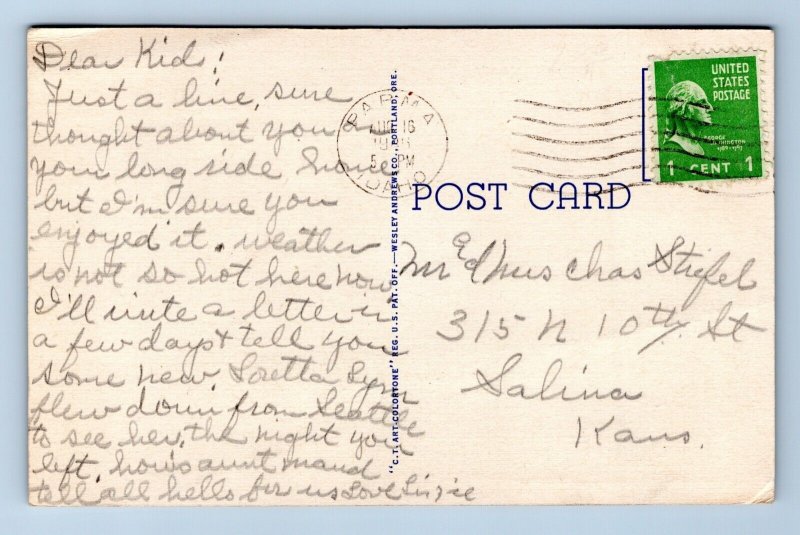 Dear Kid!
Just a line, sure
thought about you on
your long ride home
but I'm sure you
enjoyed it. weather
is not so hot here now
I'll write a letter in
a few days & tell you
some new. Loretta Lynn
flew down from Seattle
to see her, the night you
left. how's aunt maud
tell all hello for us Love
"C.T. ART-COLORTONE" REG. U.S. PAT. OFF.—WESLEY ANDREWS CO., PORTLAND, ORE.
PARMA
AUG 16
5 PM
IDAHO
UNITED
STATES
POSTAGE
GEORGE
WASHINGTON
1789-1797
1 CENT 1
POST CARD
Mr and Mrs Chas Stiefel
315 N 10th St
Salina
Kans.